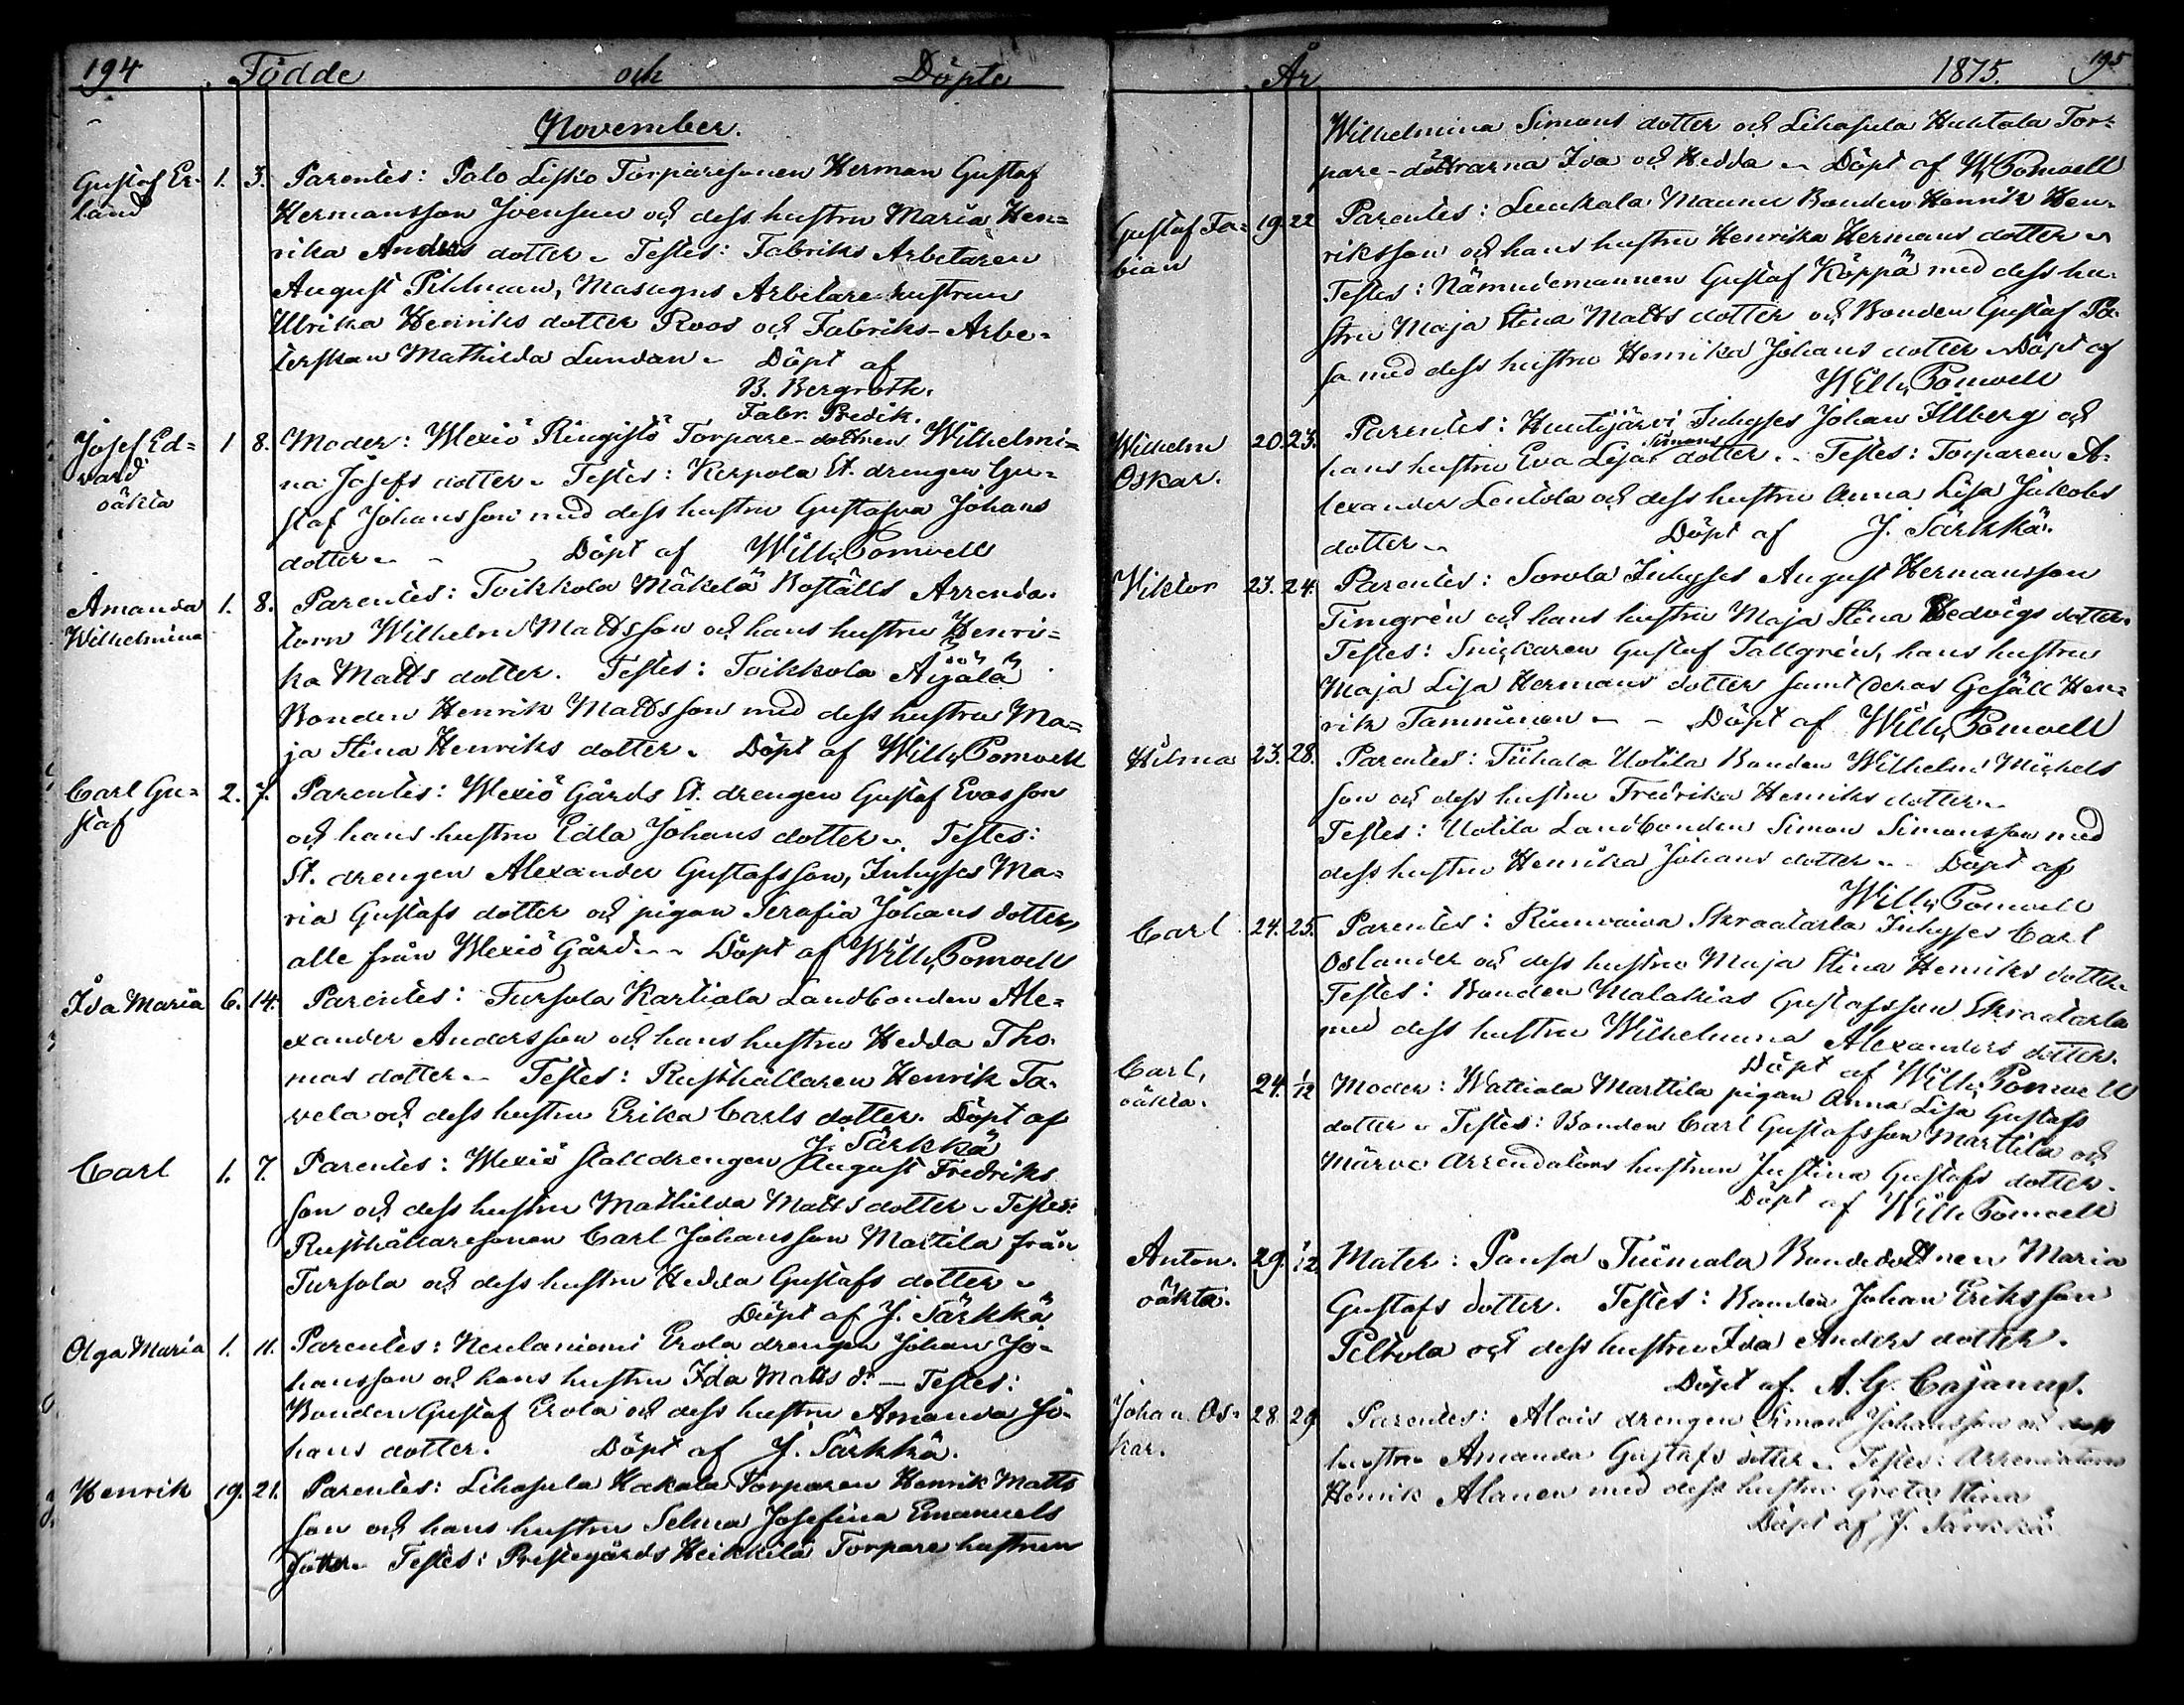 194 Födde och Döpte
November.
Gustaf Er- 1. 3. Parentes: Palo Liskio Torparesonen Herman Gustaf
land Hermansson Joensuu och dess hustru Maria Hen=
rika Anders dotter. Testes: Fabriks Arbetaren
August Pihlman, Masugns Arbetare hustrun
Ulrika Henriks dotter Roos och Fabriks-Arbe=
terskan Mathilda Lundan. Döpt af
B. Bergroth.
Fabr. Predik.
Josef Ed= 1 8. Moder: Wexiö Ringistö Torpare-dottren Wilhelmi=
vard na Josefs dotter. Testes: Kerpola St. drengen Gu=
oäkta staf Johansson med dess hustru Gustafva Johans
dotter. Döpt af Wilh. Pomoell
Amanda 1. 8. Parentes: Toikkola Mäkelä Boställs Arrenda=
Wilhelmina torn Wilhelm Mattsson och hans hustru Henri=
ka Matts dotter. Testes: Toikkola Äijälä
Bonden Henrik Mattsson med dess hustru Ma=
ja Stina Henriks dotter. Döpt af Wilh. Pomoell
Carl Gu= 2. 7. Parentes: Wexiö Gårds St. drengen Gustaf Evasson
staf och hans hustru Edla Johans dotter. Testes:
St. drengen Alexander Gustafsson, Inhyses Ma=
ria Gustafs dotter och pigan Serafia Johans dotter,
alle från Wexiö Gård. Döpt af Wilh. Pomoell
Ida Maria 6. 14. Parentes: Tursola Kartiala Landbonden Ale=
xander Andersson och hans hustru Hedda Tho=
mas dotter. Testes: Rusthållaren Henrik Ta=
vela och dess hustru Erika Carls dotter. Döpt af
J. Särkkä
Carl 1. 7. Parentes: Wexiö stalldrengen August Fredriks
son och dess hustru Mathilda Matts dotter. Testes:
Rusthållaresonen Carl Johansson Marttila från
Tursola och dess hustru Hedda Gustafs dotter.
Döpt af J. Särkkä
Olga Maria 1. 11. Parentes: Neulaniemi Erola drengen Johan Jo=
hansson och hans hustru Ida Matts dr. — Testes:
Bonden Gustaf Erola och dess hustru Amanda Jo=
hans dotter. Döpt af J. Särkkä.
Henrik 19. 21. Parentes: Lihasula Hakala Torparen Henrik Matts
son och hans hustru Selma Josefina Emanuels
dotter. Testes: Prestegårds Heikkilä Torpare hustrun
År 1875. 195
Wilhelmina Simons dotter och Lihasula Huhtala Tor=
pare-döttrarna Ida och Hedda. Döpt af W. Pomoell
Gustaf Fa= 19. 22 Parentes: Leukala Maunu Bonden Henrik Hen=
bian riksson och hans hustru Henrika Hermans dotter.
Testes: Nämndemannen Gustaf Köppä med dess hu=
stru Maja Stina Matts dotter och Bonden Gustaf Pa=
sa med dess hustru Henrika Johans dotter. Döpt af
Wilh. Pomoell
Wilhelm 20. 23. Parentes: Huntijärvi Inhyses Johan Illberg och
Oskar. hans hustru Eva Lisa Simons dotter. Testes: Torparen A=
lexander Lentola och dess hustru Anna Lisa Jakobs
dotter. Döpt af J. Särkkä.
Viktor 23. 24. Parentes: Sorola Inhyses August Hermansson
Timgrén och hans hustru Maja Stina Hedvigs dotter.
Testes: Snickaren Gustaf Tallgrén, hans hustru
Maja Lisa Hermans dotter samt deras Gesäll Hen=
rik Tamminen. Döpt af Wilh. Pomoell
Hilma 23. 28. Parentes: Tiihala Uotila Bonden Wilhelm Michels
son och dess hustru Fredrika Henriks dotter.
Testes: Uotila Landbonden Simon Simonsson med
dess hustru Henrika Johans dotter. Döpt af
Wilh. Pomoell
Carl 24. 25. Parentes: Skraatarla Inhyses Carl
Oslander och dess hustru Maja Stina Henriks dotter.
Testes: Bonden Malakias Gustafsson Skraatarla
med dess hustru Wilhelmina Alexanders dotter.
Döpt af Wilh. Pomoell
Carl, 24. 1/12 Moder: Wattiala Marttila pigan Anna Lisa Gustafs
oäkta. dotter. Testes: Bonden Carl Gustafsson Marttila och
Märve Arrendators hustrun Justina Gustafs dotter.
Döpt af Wilh. Pomoell
Anton. 29. 1/12 Mater: Pansa Tiimala Bondedottren Maria
oäkta. Gustafs dotter. Testes: Bonden Johan Eriksson
Peltola och dess hustru Ida Anders dotter.
Döpt af. A. G. Cajanus.
Johan Os= 28. 29. Parentes: Alais drengen Simon Johansson och dess
kar. hustru Amanda Gustafs dotter. Testes: Arrendatorn
Henrik Alanen med dess hustru Greta Stina
Döpt af J. Särkkä